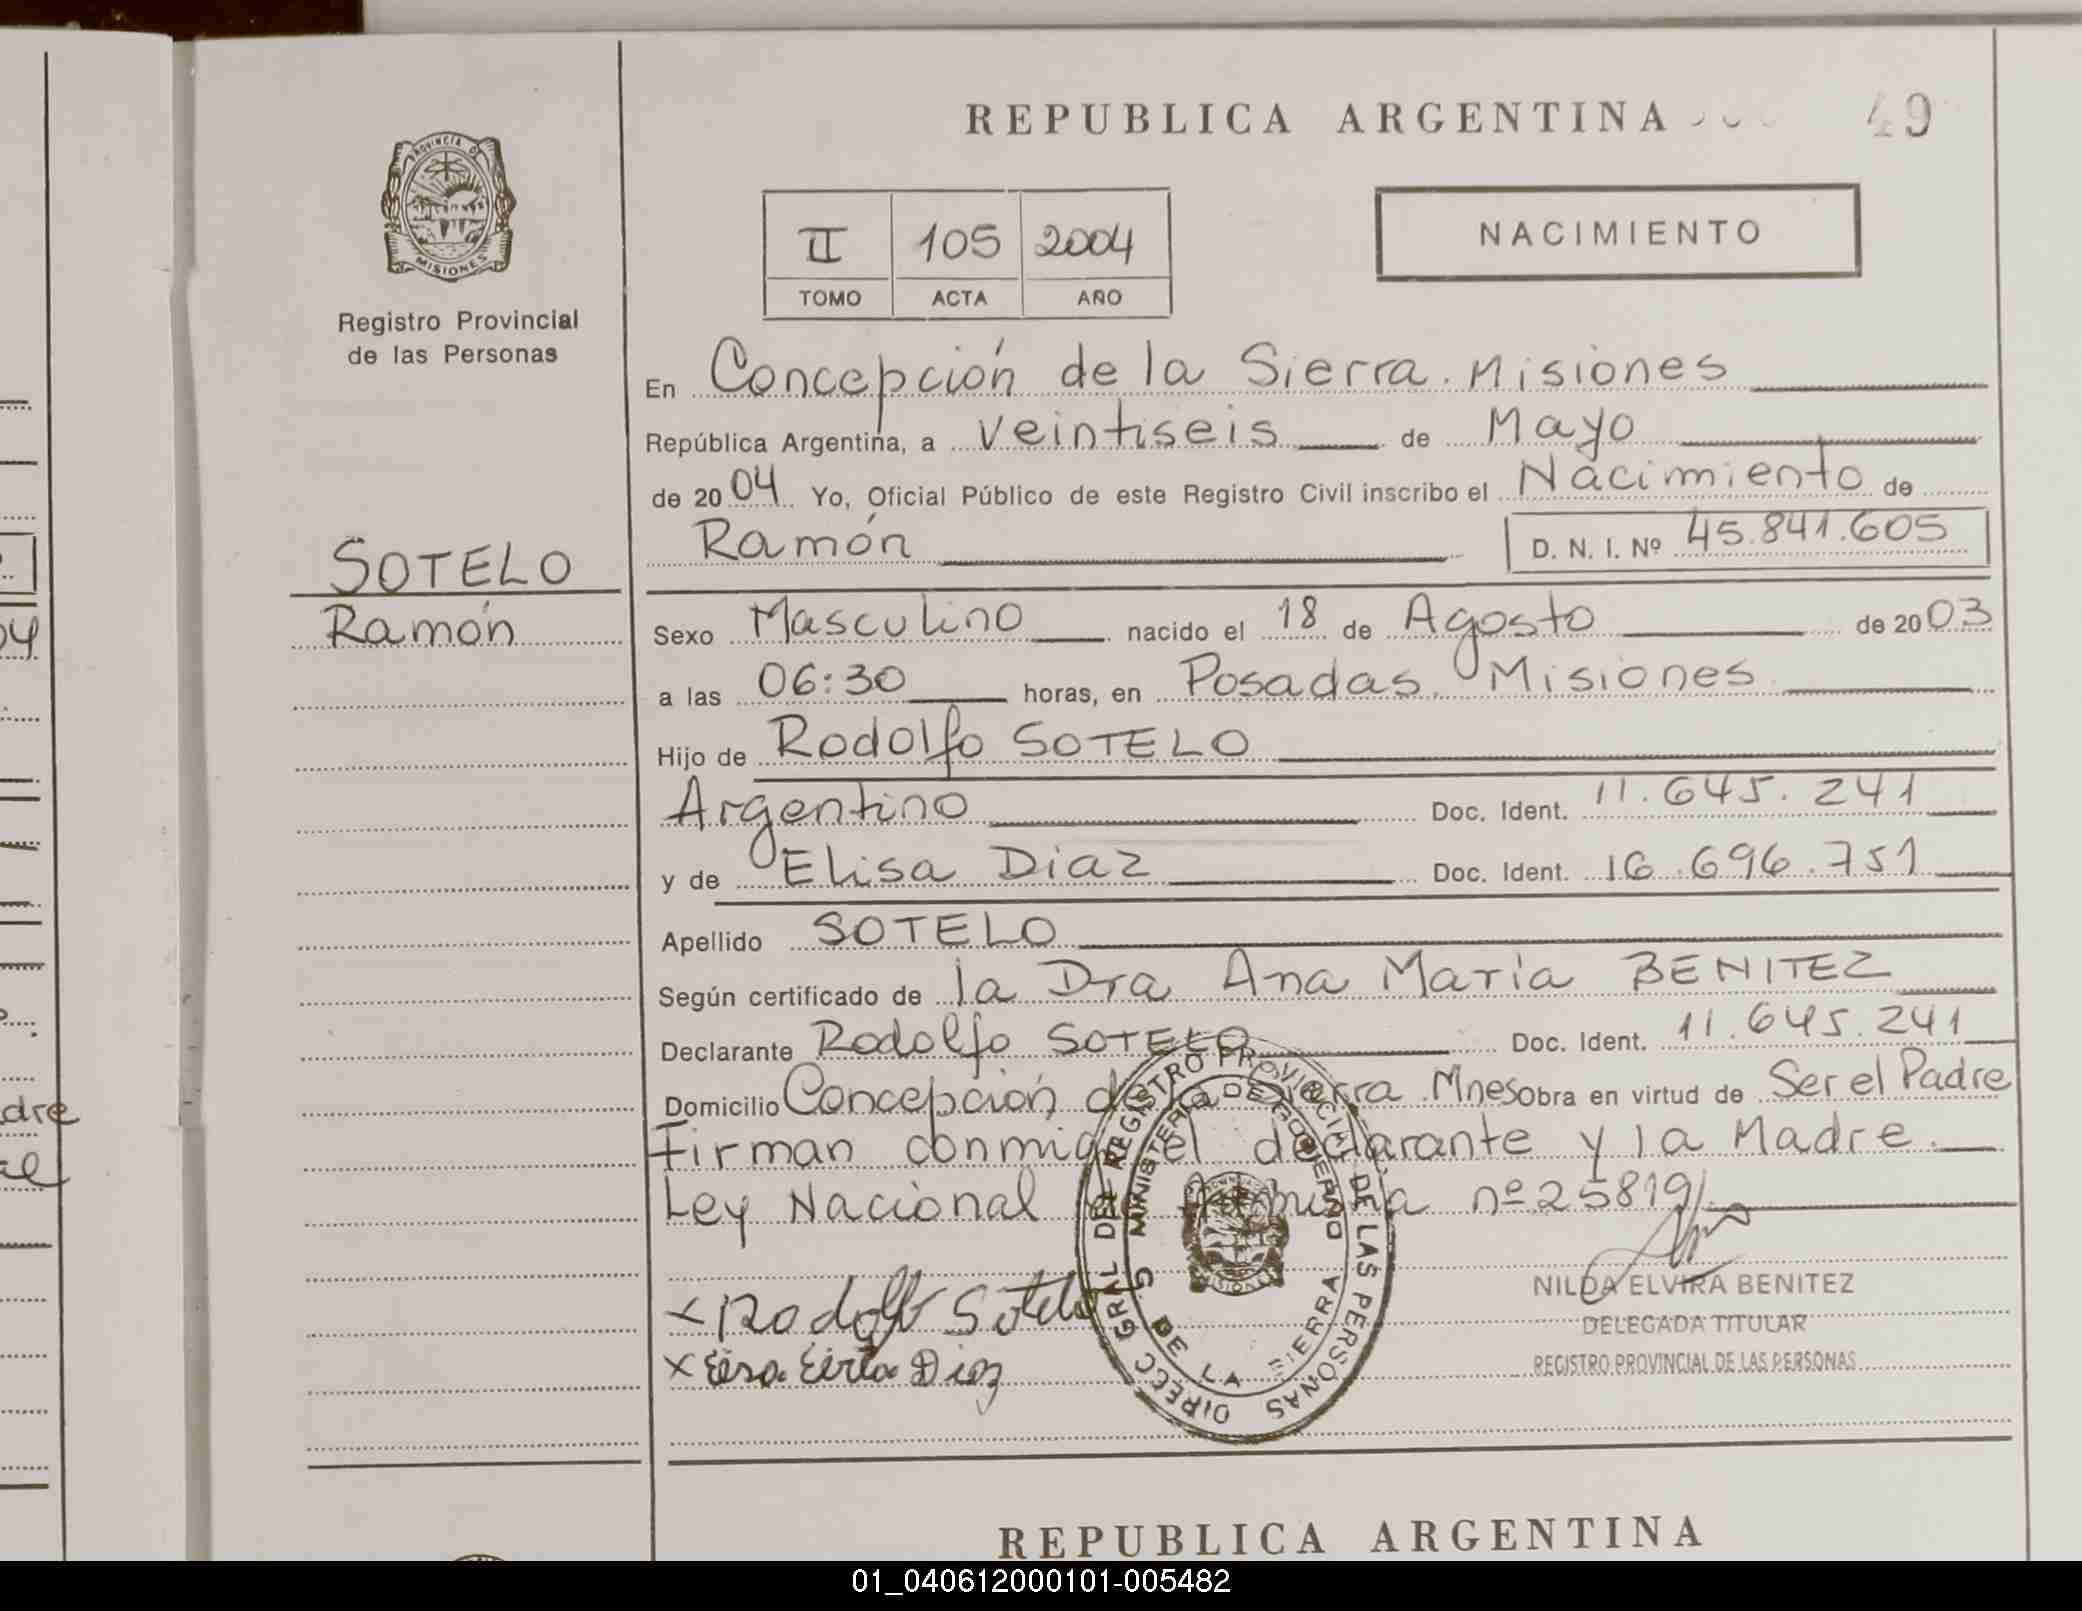 REPUBLICA ARGENTINA
49
PROVINCIA DE
MISIONES
Registro Provincial
de las Personas
II 105 2004
TOMO ACTA AÑO
NACIMIENTO
En Concepción de la Sierra. Misiones
República Argentina, a veintiseis de Mayo
de 2004 Yo, Oficial Público de este Registro Civil inscribo el Nacimiento de
Ramón D. N. I. Nº 45.841.605
SOTELO
Ramón
Sexo Masculino nacido el 18 de Agosto de 2003
a las 06:30 horas, en Posadas. Misiones
Hijo de Rodolfo SOTELO
Argentino Doc. Ident. 11.645.241
y de Elisa Diaz Doc. Ident. 16.696.751
Apellido SOTELO
Según certificado de la Dra Ana Maria BENITEZ
Declarante Rodolfo SOTELO Doc. Ident. 11.645.241
Domicilio Concepción de la Sierra. Mnes Obra en virtud de Ser el Padre
Firman conmigo el declarante y la Madre.
Ley Nacional de Amnistia nº 25819/.
x Rodolfo Sotelo
x Diaz
DIRECC GRAL DEL REGISTRO PROVINCIAL DE LAS PERSONAS
MINISTERIO DE GOBIERNO
DE LA SIERRA
NILDA ELVIRA BENITEZ
DELEGADA TITULAR
REGISTRO PROVINCIAL DE LAS PERSONAS
04
adre
el
REPUBLICA ARGENTINA
01_040612000101-005482